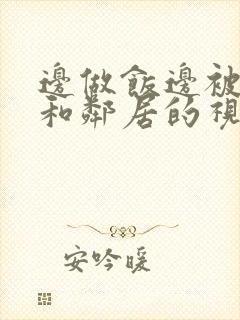 邊做飯邊被
和鄰居的視
安吟暖